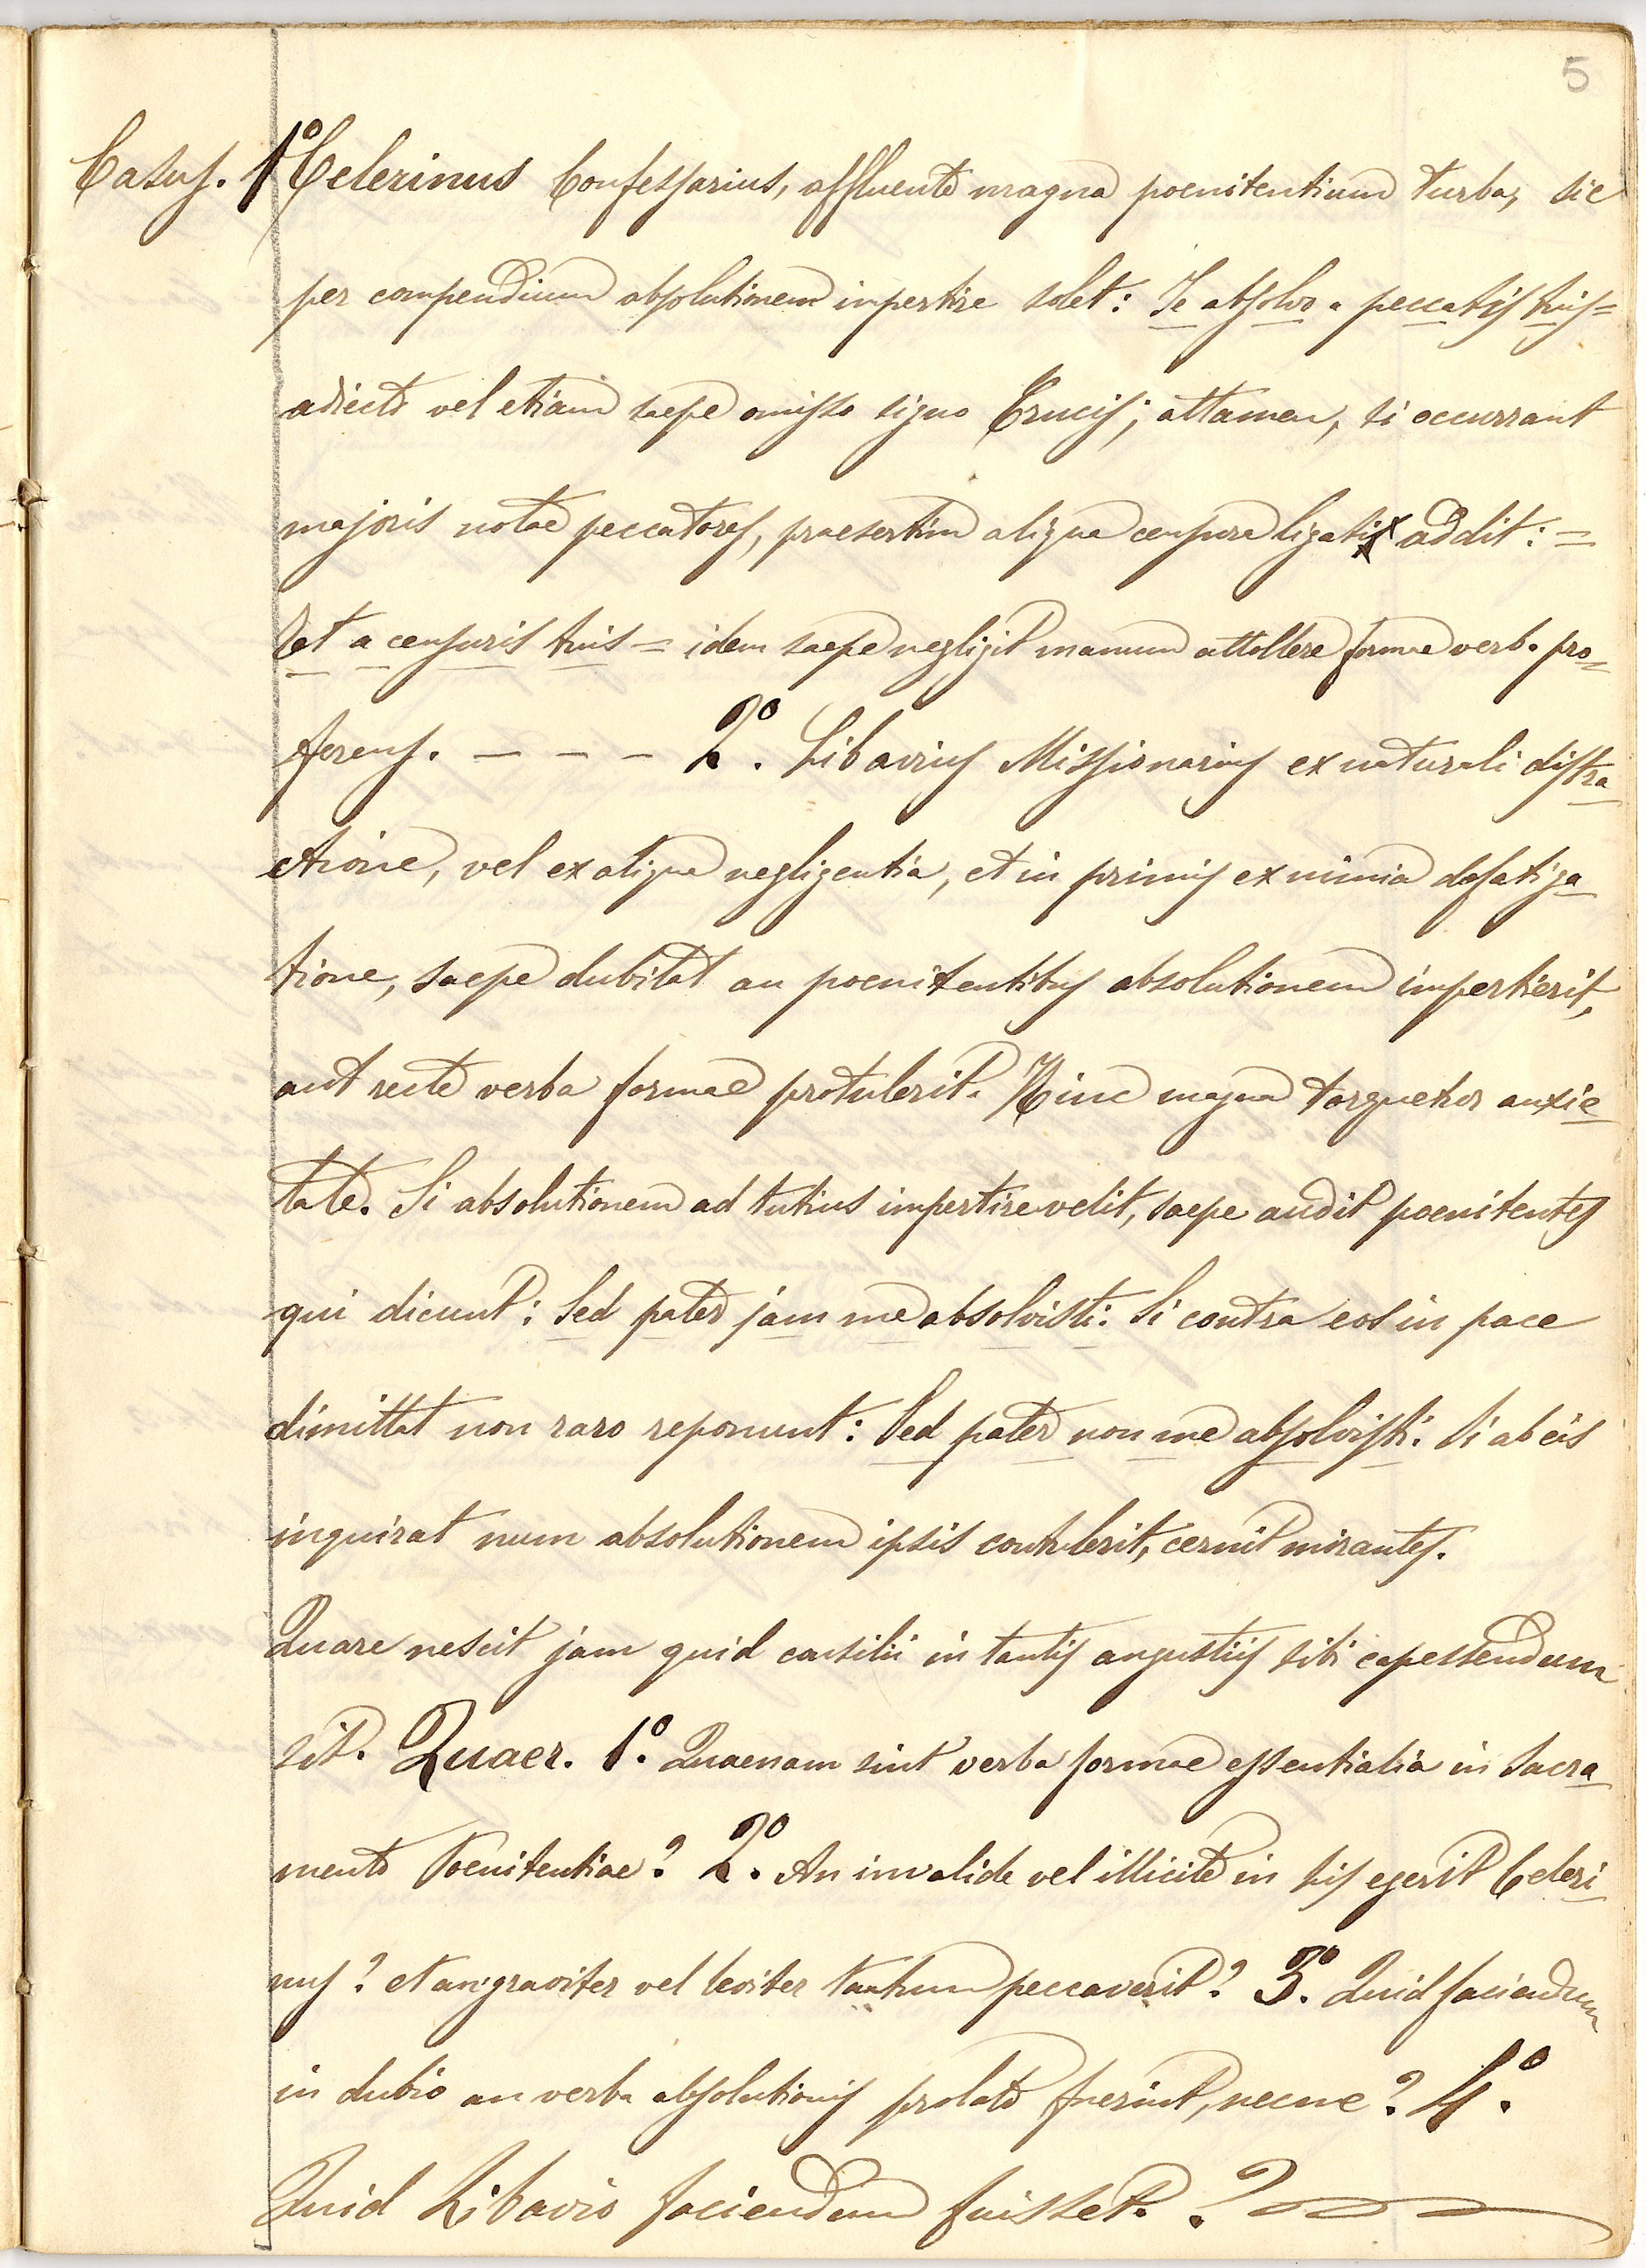 5
Casus. 1º Celerinus Confessarius, affluente magna poenitentium turba, sic
per compendium absolutionem impertire solet: Te absolvo a peccatis tuis=
adiecto vel etiam saepe omisso signo Crucis; attamen, si occurrant
majoris notae peccatores, praesertim aliqua censura ligati addit: =
Et a censuris tuis = idem saepe negligit manum attollere formae verb. pro=
ferens. - - - 2º. Libavius Missionarius ex naturali distra
ctione, vel ex aliqua negligentia, et in primis ex nimia defatiga
tione, saepe dubitat an poenitentibus absolutionem impertierit,
aut recte verba formae protulerit. Hinc magna torquetur anxie
tate. Si absolutionem ad tutius impertire velit, saepe audit poenitentes
qui dicunt: Sed pater jam me absolvisti: Si contra eos in pace
dimittat non raro reponunt: Sed pater non me absolvisti: Si ab eis
inquirat num absolutionem ipsis contulerit, cernit mirantes.
Quare nescit jam quid consilii in tantis angustiis sibi capessendum
sit. Quaer. 1º. Quaenam sint verba formae essentialia in Sacra
mento Poenitentiae? 2º. An invalide vel illicite in his egerit Celeri
nus? et an graviter vel leviter tantum peccaverit? 3º. Quid faciendum
in dubio an verba absolutionis prolata fuerint, necne? 4º.
Quid Libavio faciendum fuisset. ?